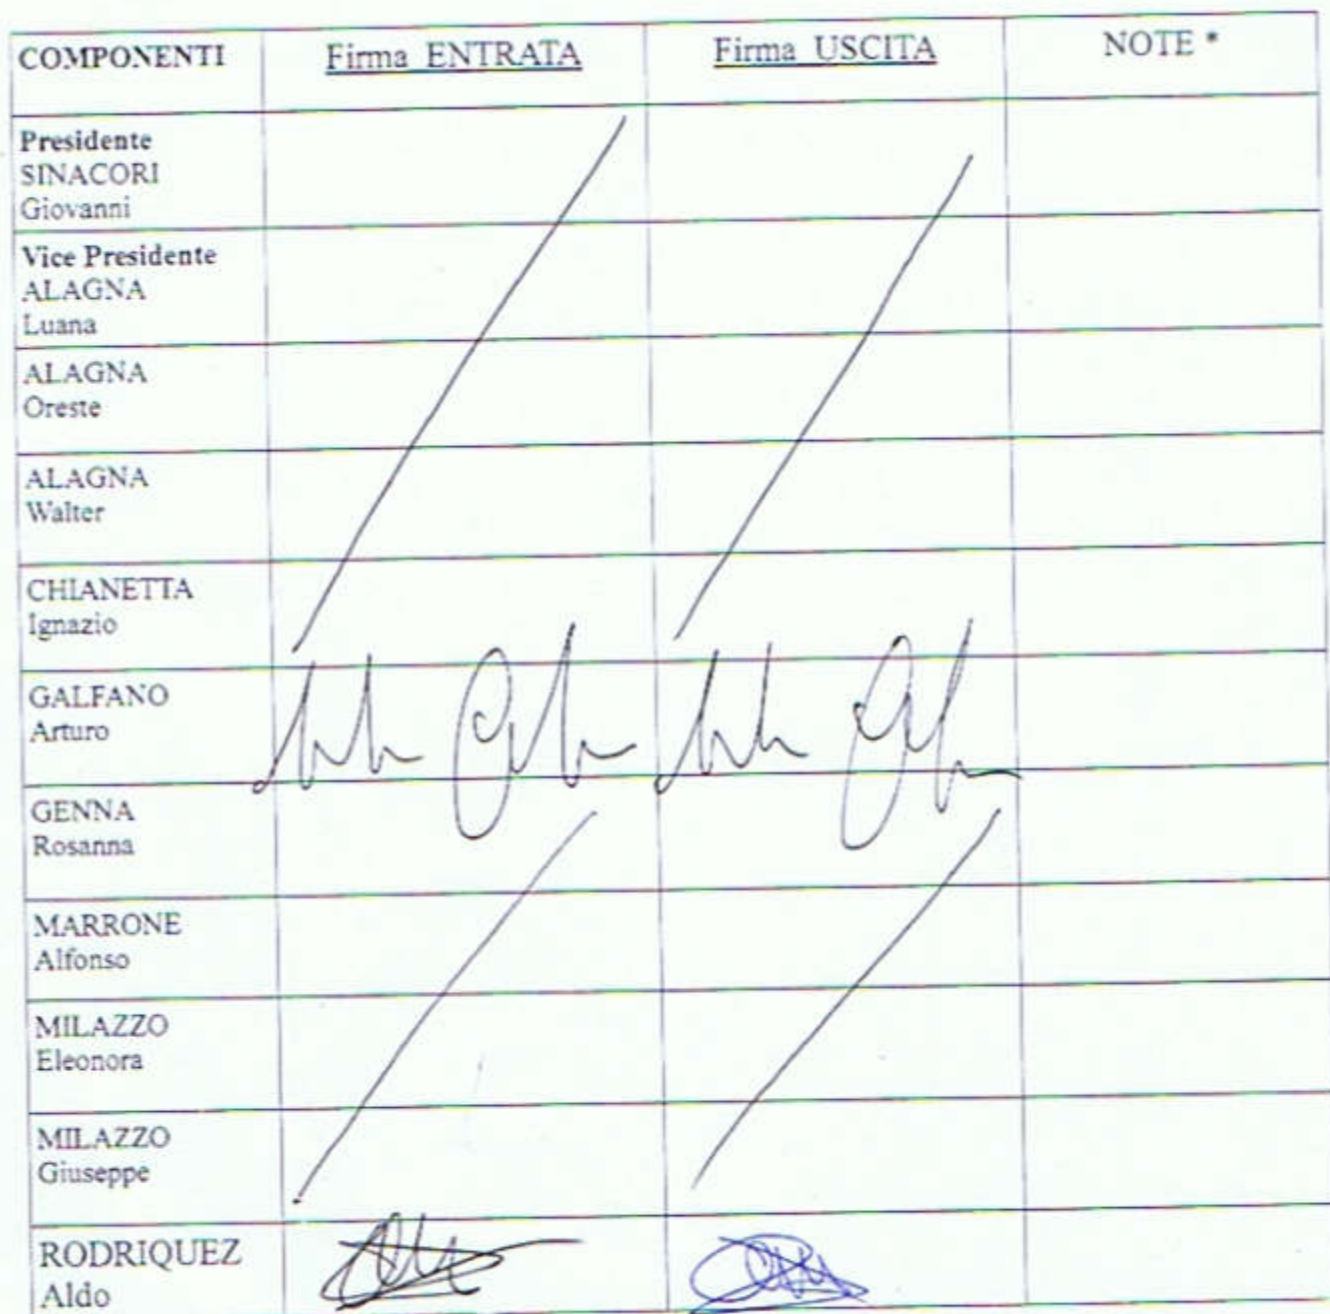 COMPONENTI Firma ENTRATA Firma USCITA NOTE *
Presidente
SINACORI
Giovanni
Vice Presidente
ALAGNA
Luana
ALAGNA
Oreste
ALAGNA
Walter
CHIANETTA
Ignazio
GALFANO
Arturo
GENNA
Rosanna
MARRONE
Alfonso
MILAZZO
Eleonora
MILAZZO
Giuseppe
RODRIQUEZ
Aldo